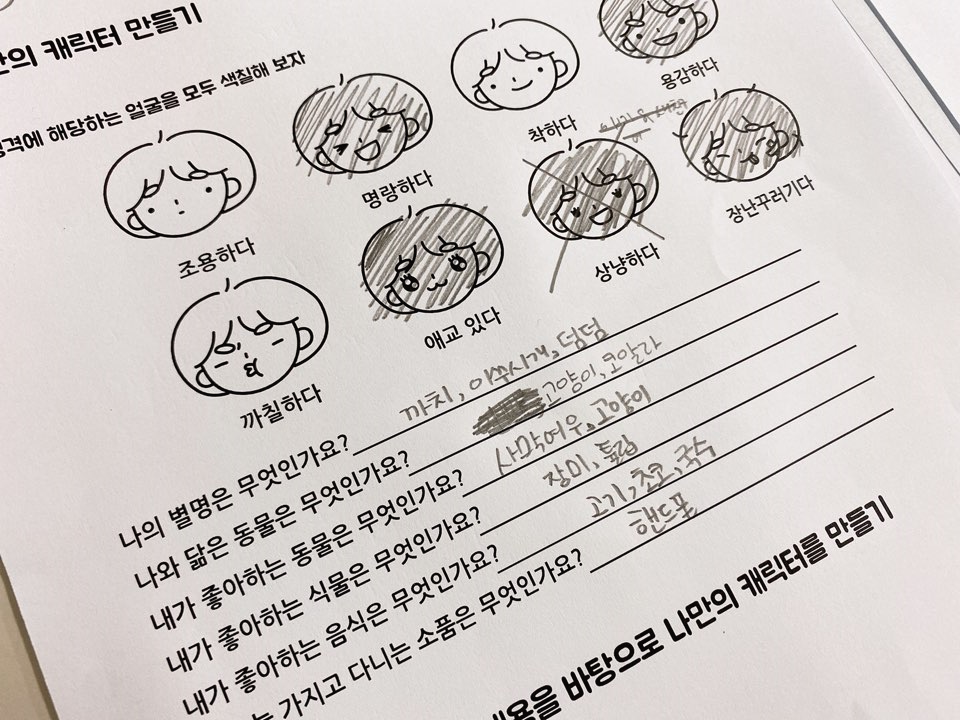 만의 캐릭터 만들기
성격에 해당하는 얼굴을 모두 색칠해 보자
조용하다
명랑하다
착하다
용감하다
까칠하다
애교 있다
상냥하다
장난꾸러기다
나의 별명은 무엇인가요? 까치, 이쑤시개, 덤덤
나와 닮은 동물은 무엇인가요? 고양이, 코알라
내가 좋아하는 동물은 무엇인가요? 사막여우, 고양이
내가 좋아하는 식물은 무엇인가요? 장미, 튤립
내가 좋아하는 음식은 무엇인가요? 고기, 초코, 국수
가지고 다니는 소품은 무엇인가요? 핸드폰
내용을 바탕으로 나만의 캐릭터를 만들기